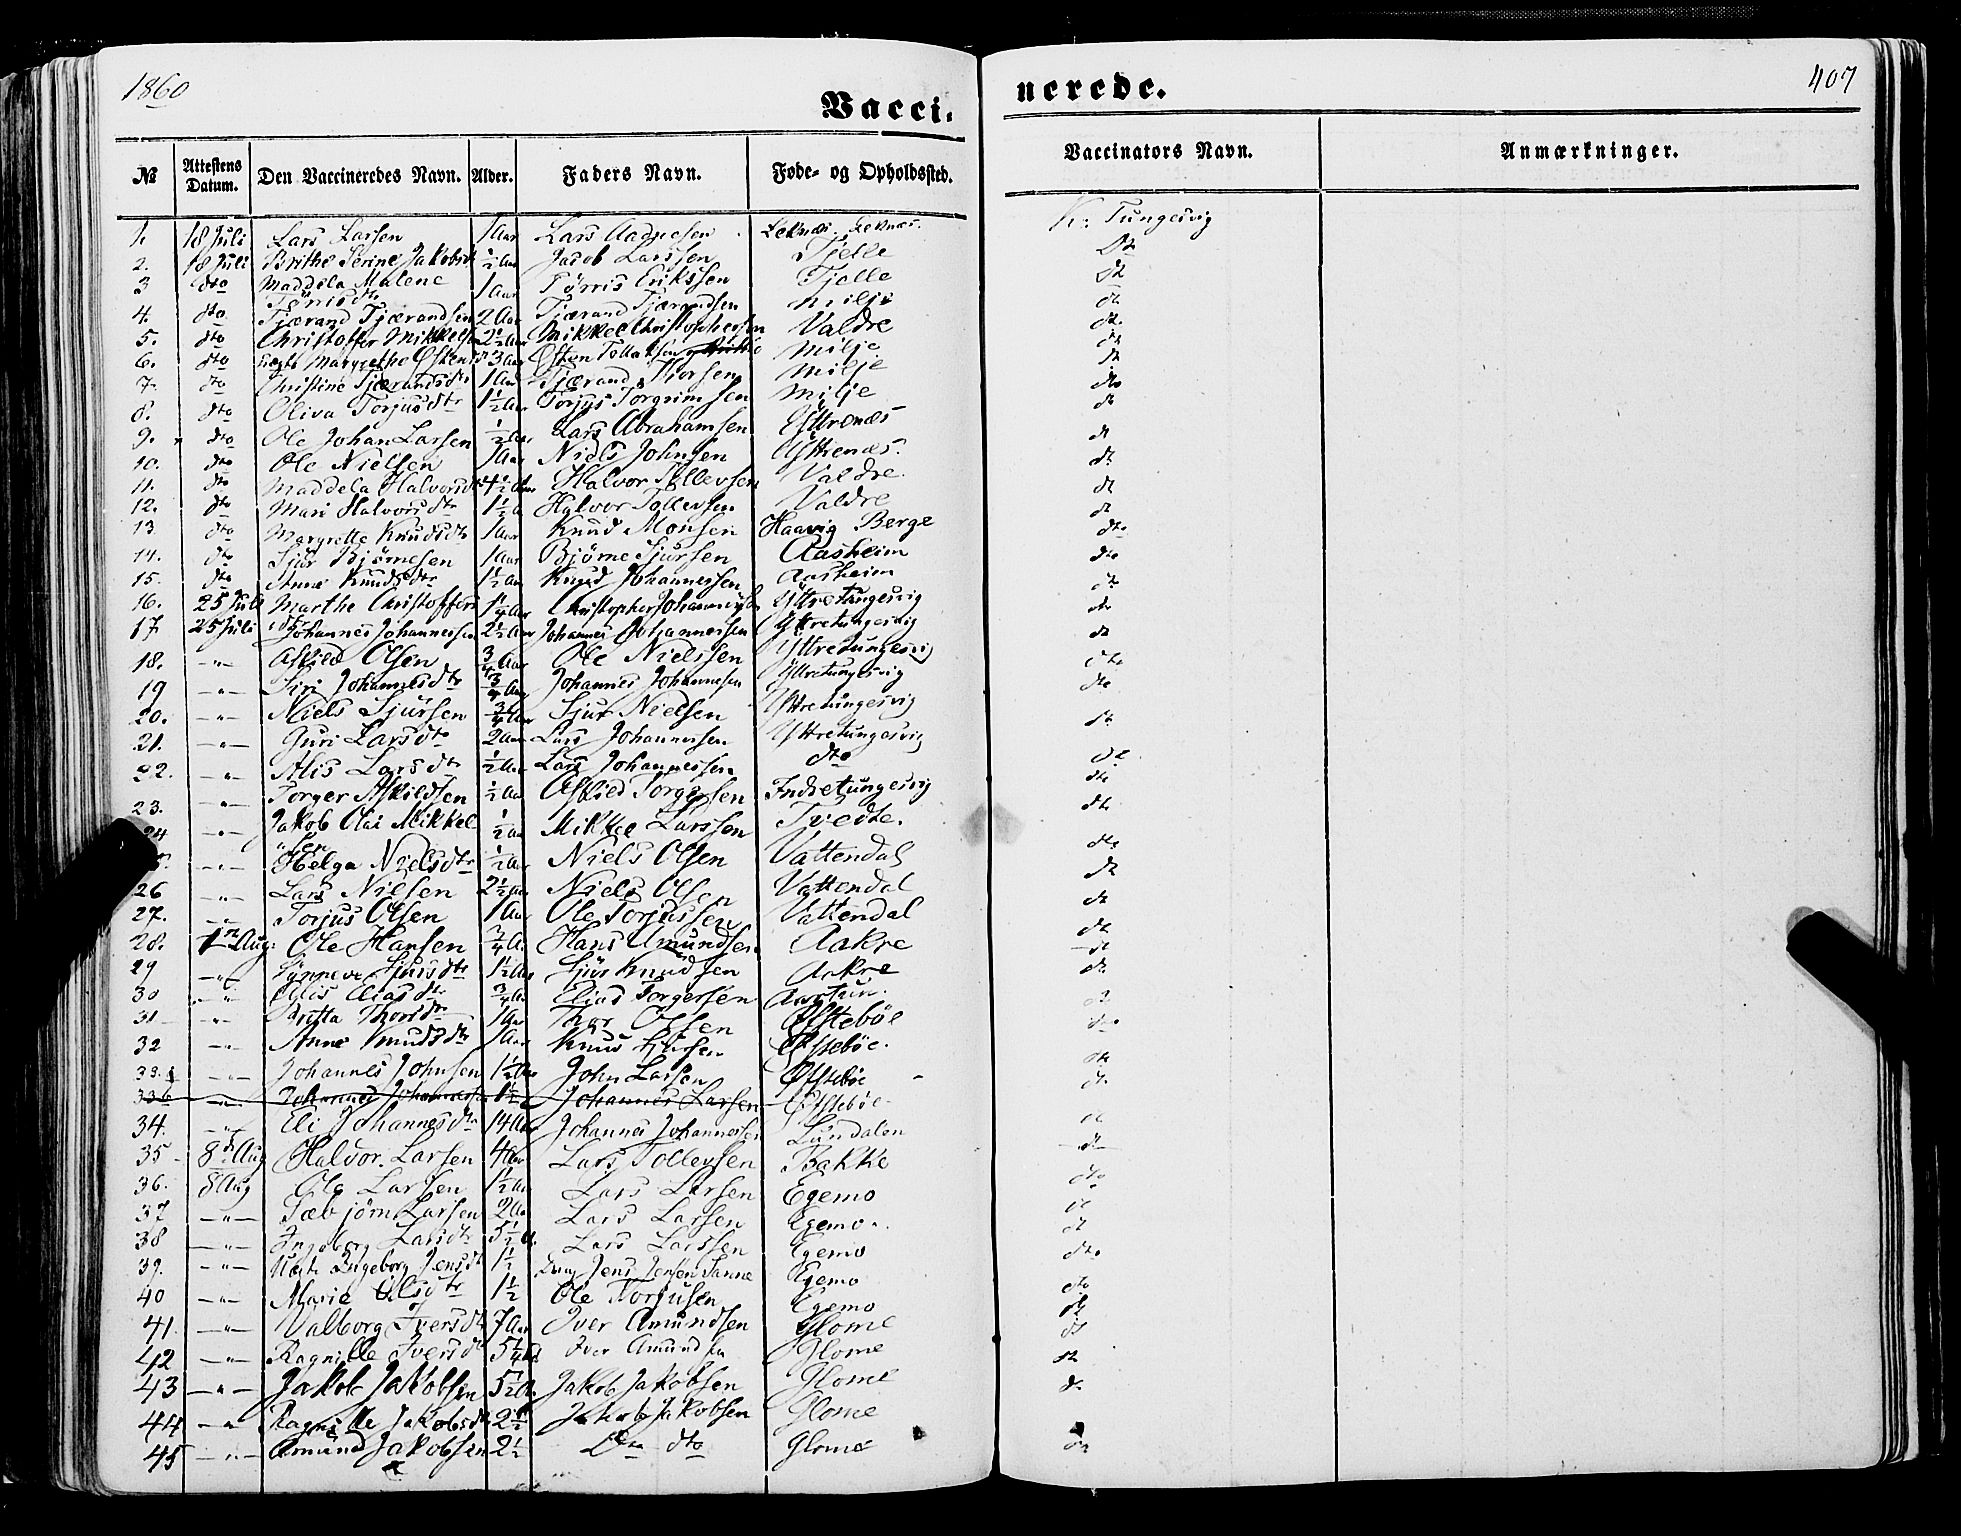 1860
407
Vacci. nerede.
№ Attestens Datum. Den Vaccineredes Navn. Alder. Faders Navn. Føde- og Opholdssted. Vaccinators Navn. Anmærkninger.
1. 18 Juli Lars Larsen 1 Aar Lars Leknæs K: Tungesvig
2. 18 Juli Brithe Serine Jakobsdt ½ Aar Jacob Larssen Tjelle
3 dto Maddela Malene 1 Aar Tørris Erikssen Tjelle dt
Tørrisdtr
4. dto Tjærand Tjærandsen 2 Aar Tjærand Tjærandsen Milje dt
5. dto Christoffer Mikkelsen 2½ Aar Mikkel Christophersen Valdre dt.
6. dto Margrethe Østensdt 3 Aar Østen Milje dt
7. dto Christine Tjærandsdtr 1 Aar Tjærand Milje dt
8. dto Oliva Torjusdtr 1½ Aar Torjus Torgrimsen Milje dto
9. dto Ole Johan Larsen ½ Aar Lars Abrahamsen Yttrenæs dt
10. dto Ole Nielsen 1 Aar Niels Johnsen Yttrenæs. dt
11. dto Maddela Halvorsdtr 4½ Aar Halvor Tollevsen Valdre dt.
12. dto Mari Halvorsdtr 1½ A Halvor Tollevsen Valdre dt
13 dto Margrette Knudsdtr 1 Aar Knud Monsen Haavig Berge dt
14. dto Sjur Bjørnesen 1 Aar Bjørne Sjursen Aasheim dto
15. dto Anne Knudsdtr 1½ Aar Knud Johannessen Aasheim dto
16. 25 Juli Marthe Christoffers 1¼ Aar Christopher Johannessen Yttretungesvig dt
17 25 Juli Johannes Johannessen 2½ Aar Johannes Johannessen Yttretungesvig dt
18. -"- Askild Olsen ¾ Aar Ole Nielssen Yttretungesvig dt
19 -"- Siri Johannesdtr ¾ Aar Johannes Johannesen Yttretungesvig dto
20. -"- Niels Sjursen ¾ Aar Sjur Nielsen Yttretungesvig dto
21. -"- Guri Larsdtr 2 Aar Lars Johannessen Yttretungesvig dt
22. -"- Alis Larsdtr ½ Aar Lars Johannessen dto dt
23. -"- Torger Askildsen ½ Aar Askild Torgersen Indretungesvig dto
-"- Jakob Olai Mikkel ½ Aar Mikkel Larssen Tvedte. dto
sen
-"- Helga Nielsdtr ½ Aar Niels Olsen Vattendal dto
26 -"- Lars Nilsen 2½ Aar Niels Olsen Vattendal dt
27. -"- Torjus Olsen 1 Aar Ole Torjussen Vattendal dt
28. 1n Aug: Ole Hansen ¾ A. Hans Amundsen Aakre dt
29 -"- Synneve Sjursdtr 1½ Aar Sjur Knudsen Aakre dt
30 -"- Alis Eliasdtr ¾ A Elias Torgersen Aartun. dt
31 -"- Britta Thorsdtr 1 Aar Thor Olsen Østebøe dt
32 -"- Anne Knudsdtr 1 Aar Knud Sjursen Østebøe. dto
33. -"- Johannes Johnsen 1½ Aar John Larsen Østebøe dt
33b -"- Johannes Johannessen 1½ Johannes Larsen Østebøe dt.
34. -"- Eli Johannesdtr 14 Aar Johannes Johannessen Lundalen dt
35 8d Aug Halvor Larsen 4 Aar Lars Tollevsen Bakke dt
36. 8 Aug Ole Larsen 1½ Aar Lars Larsen Egemo dto
37 -"- Sæbjørn Larsen 2 Aar Lars Larsen Egemo. dt
38 -"- Ingeborg Larsdtr 5½ A. Lars Larssen Egemo dt
39. -"- Ingeborg Jensdt 1½ Jens Jensen Sanne Egemo dto
40 -"- Marie Olsdtr 1½ Ole Torjusen Egemo dto
41 -"- Valborg Iversdt 7 Aar Iver Amundsen Glome dt
42 -"- Ragnille Iversdt 5¼ Iver Amundsen Glome dt
43 -"- Jakob Jakobsen 5½ A. Jakob Jakobsen Glome dt
44 -"- Ragnille Jakobsdt 2½ Jakob Jakobsen Glome dt
45 -"- Amund Jakobsen 2½ dto Glome dt